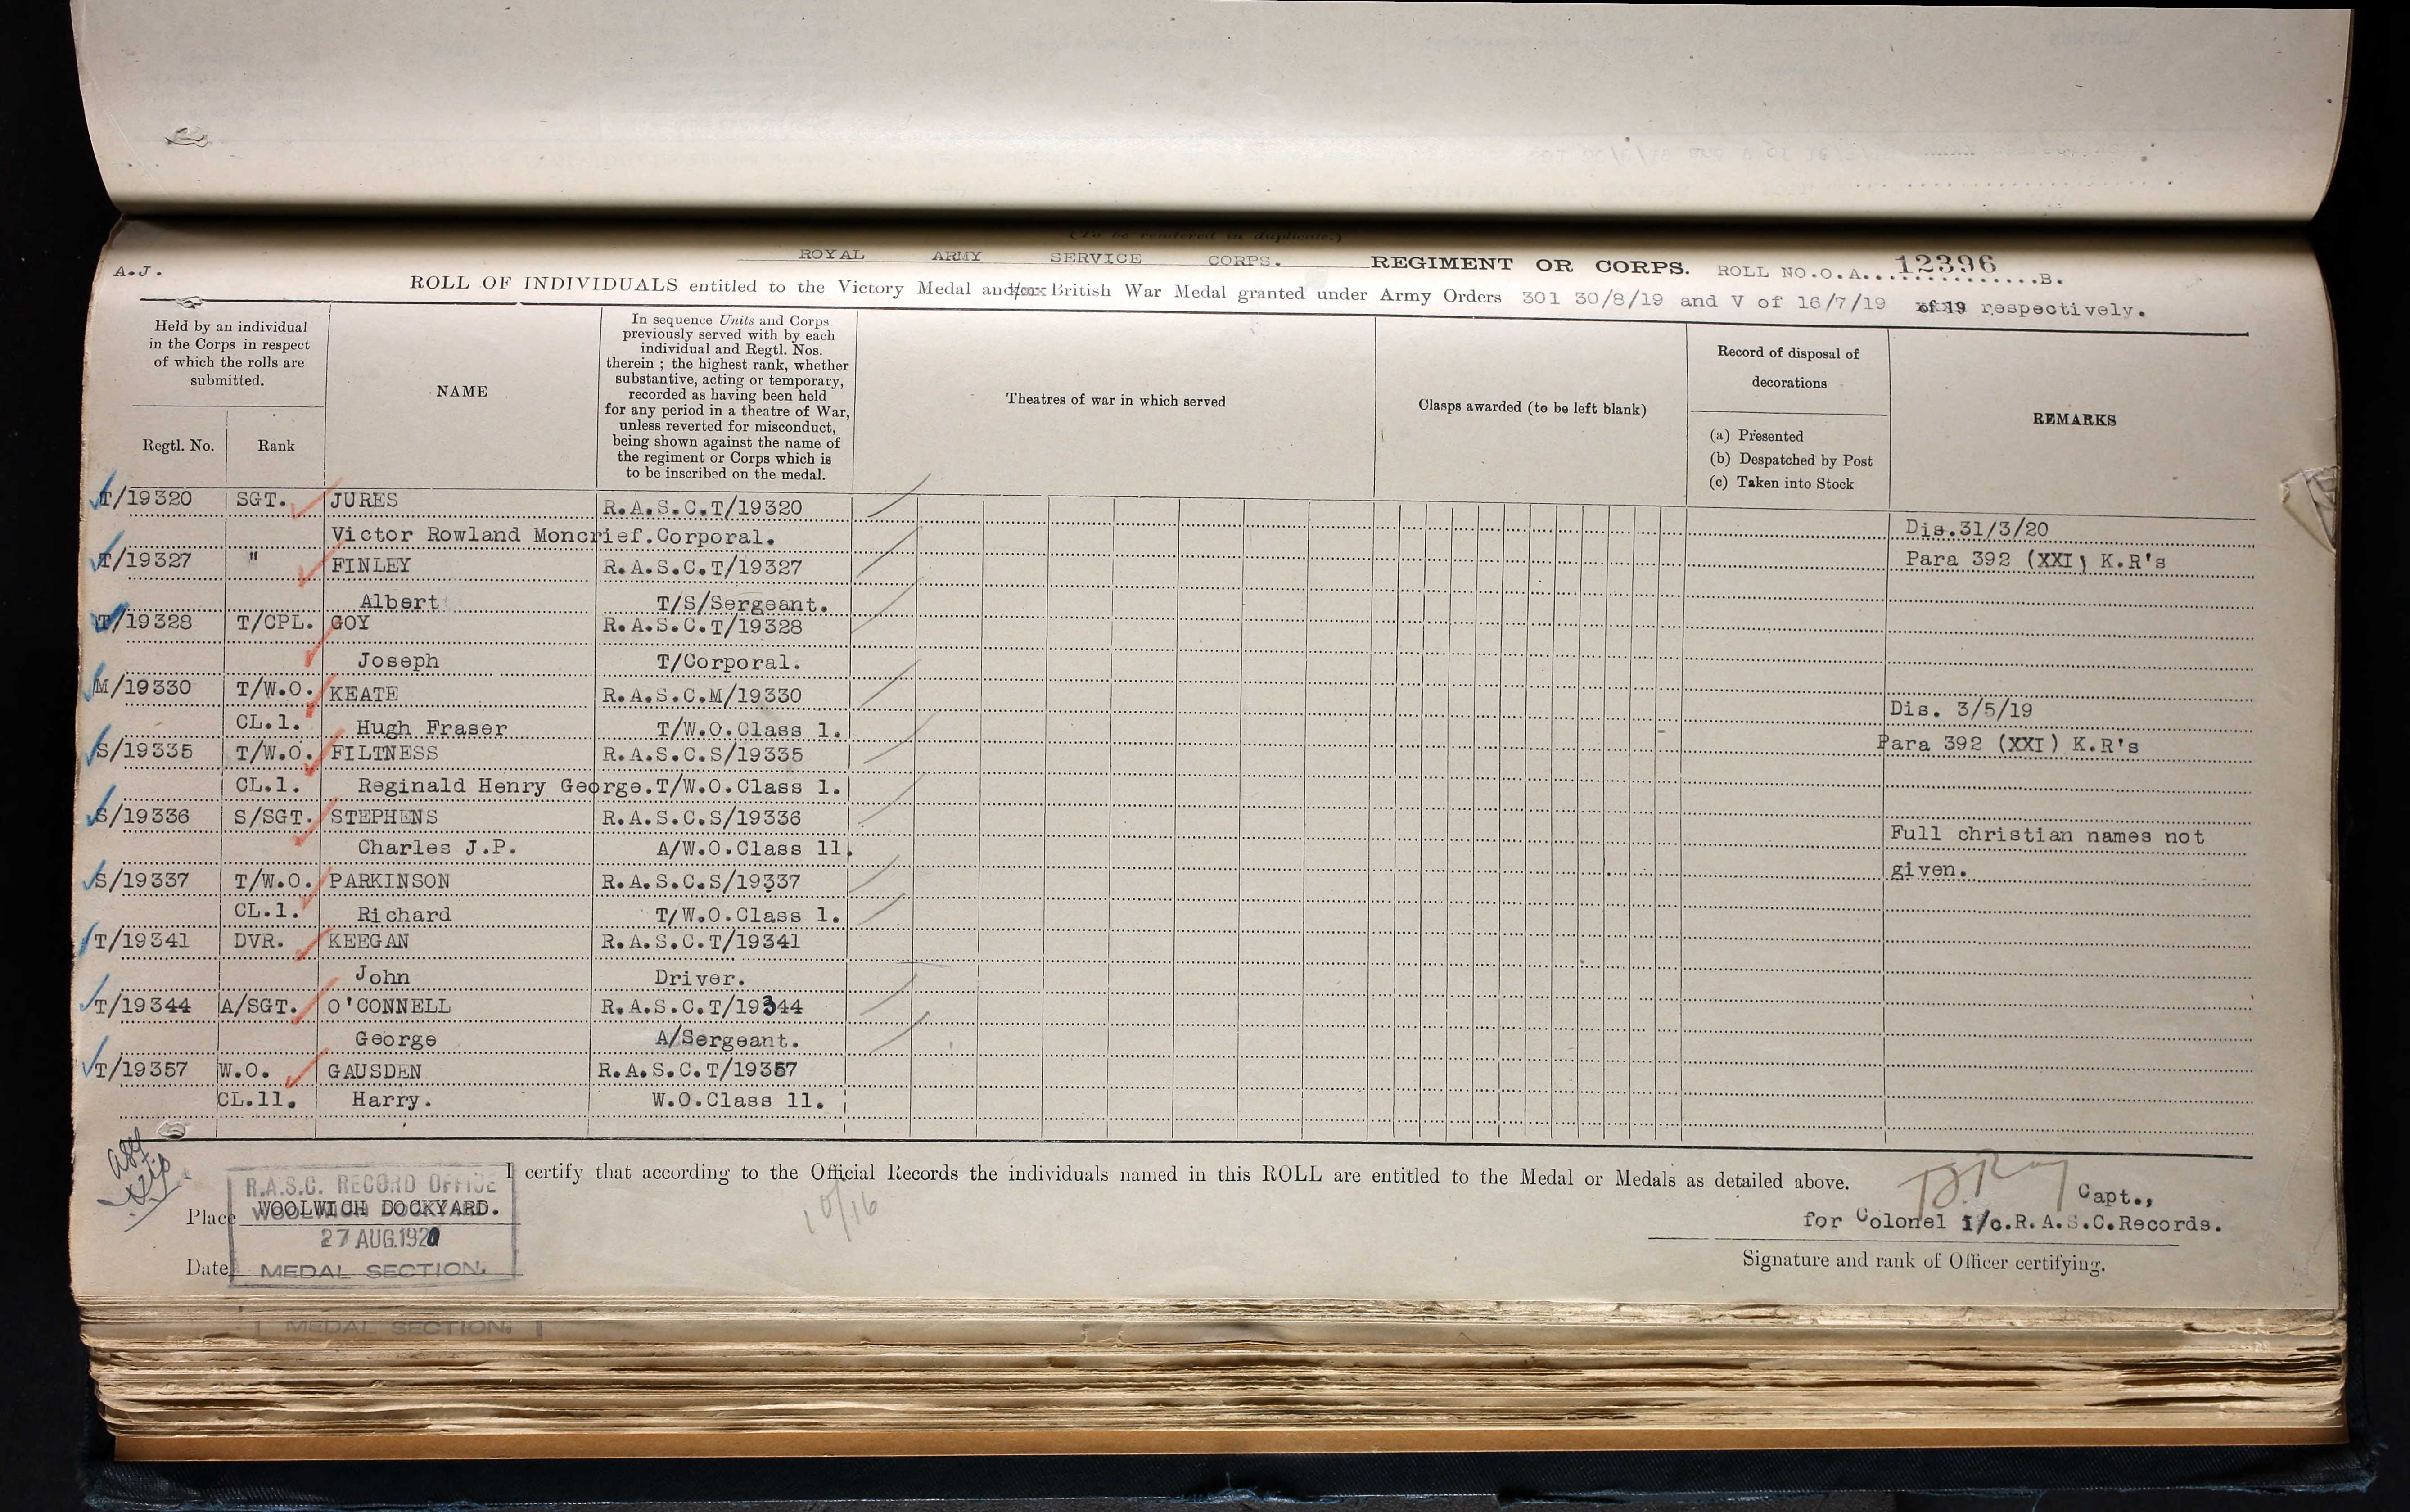 (To be rendered in duplicate.)
A.J. ROYAL ARMY SERVICE CORPS. REGIMENT OR CORPS. ROLL NO.O.A...12396...B.
ROLL OF INDIVIDUALS entitled to the Victory Medal and/or British War Medal granted under Army Orders 301 30/8/19 and V of 16/7/19 of 19 respectively.
Held by an individual
in the Corps in respect
of which the rolls are
submitted.
Regtl. No. Rank
NAME
In sequence Units and Corps
previously served with by each
individual and Regtl. Nos.
therein ; the highest rank, whether
substantive, acting or temporary,
recorded as having been held
for any period in a theatre of War,
unless reverted for misconduct,
being shown against the name of
the regiment or Corps which is
to be inscribed on the medal.
Theatres of war in which served
Clasps awarded (to be left blank)
Record of disposal of
decorations
(a) Presented
(b) Despatched by Post
(c) Taken into Stock
REMARKS
T/19320 SGT. JURES R.A.S.C.T/19320
Victor Rowland Moncrief.Corporal. Dis.31/3/20
T/19327 " FINLEY R.A.S.C.T/19327 Para 392 (XXI) K.R's
Albert T/S/Sergeant.
T/19328 T/CPL. GOY R.A.S.C.T/19328
Joseph T/Corporal.
M/19330 T/W.O. KEATE R.A.S.C.M/19330
CL.1. Hugh Fraser T/W.O.Class 1. Dis. 3/5/19
S/19335 T/W.O. FILTNESS R.A.S.C.S/19335 Para 392 (XXI) K.R's
CL.1. Reginald Henry George.T/W.O.Class 1.
S/19336 S/SGT. STEPHENS R.A.S.C.S/19336
Charles J.P. A/W.O.Class 11. Full christian names not
S/19337 T/W.O. PARKINSON R.A.S.C.S/19337 given.
CL.1. Richard T/W.O.Class 1.
T/19341 DVR. KEEGAN R.A.S.C.T/19341
John Driver.
T/19344 A/SGT. O'CONNELL R.A.S.C.T/19344
George A/Sergeant.
T/19357 W.O. GAUSDEN R.A.S.C.T/19357
CL.11. Harry. W.O.Class 11.
I certify that according to the Official Records the individuals named in this ROLL are entitled to the Medal or Medals as detailed above.
R.A.S.C. RECORD OFFICE
Place WOOLWICH DOCKYARD.
27 AUG.1920
Date MEDAL SECTION.
10/16
Capt.,
for Colonel i/c.R.A.S.C.Records.
Signature and rank of Officer certifying.
MEDAL SECTION.